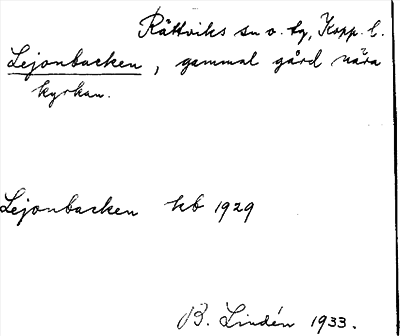 Rättviks sn o. by, Kopp. l.
Lejonbacken, gammal gård nära
kyrkan.
Lejonbacken kb 1929
B. Lindén 1933.